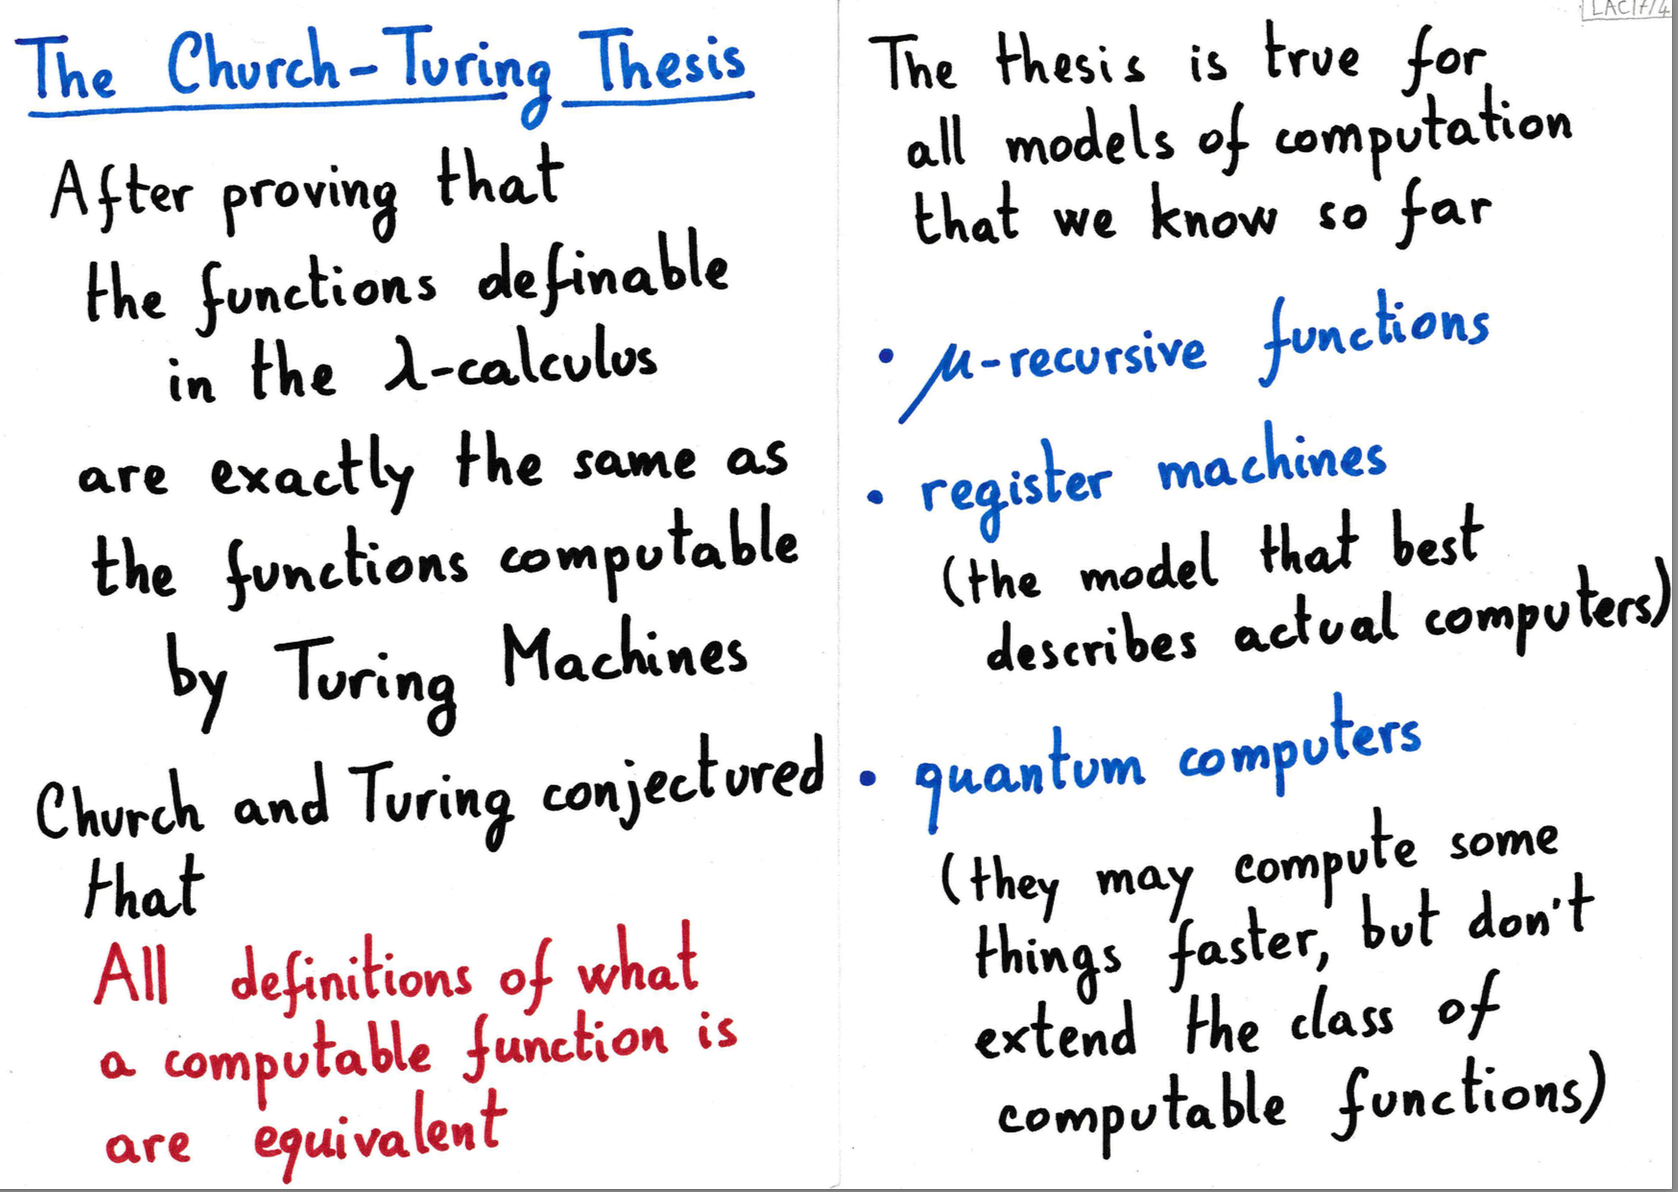 The Church-Turing Thesis
After proving that
the functions definable
in the λ-calculus
are exactly the same as
the functions computable
by Turing Machines
Church and Turing conjectured
that
All definitions of what
a computable function is
are equivalent
LAC17/4
The thesis is true for
all models of computation
that we know so far
• μ-recursive functions
• register machines
(the model that best
describes actual computers)
• quantum computers
(they may compute some
things faster, but don't
extend the class of
computable functions)